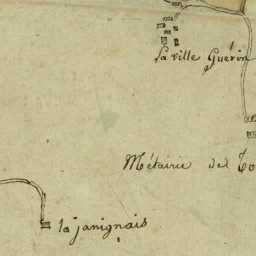 la ville Guérin
Métairie de
la janignais